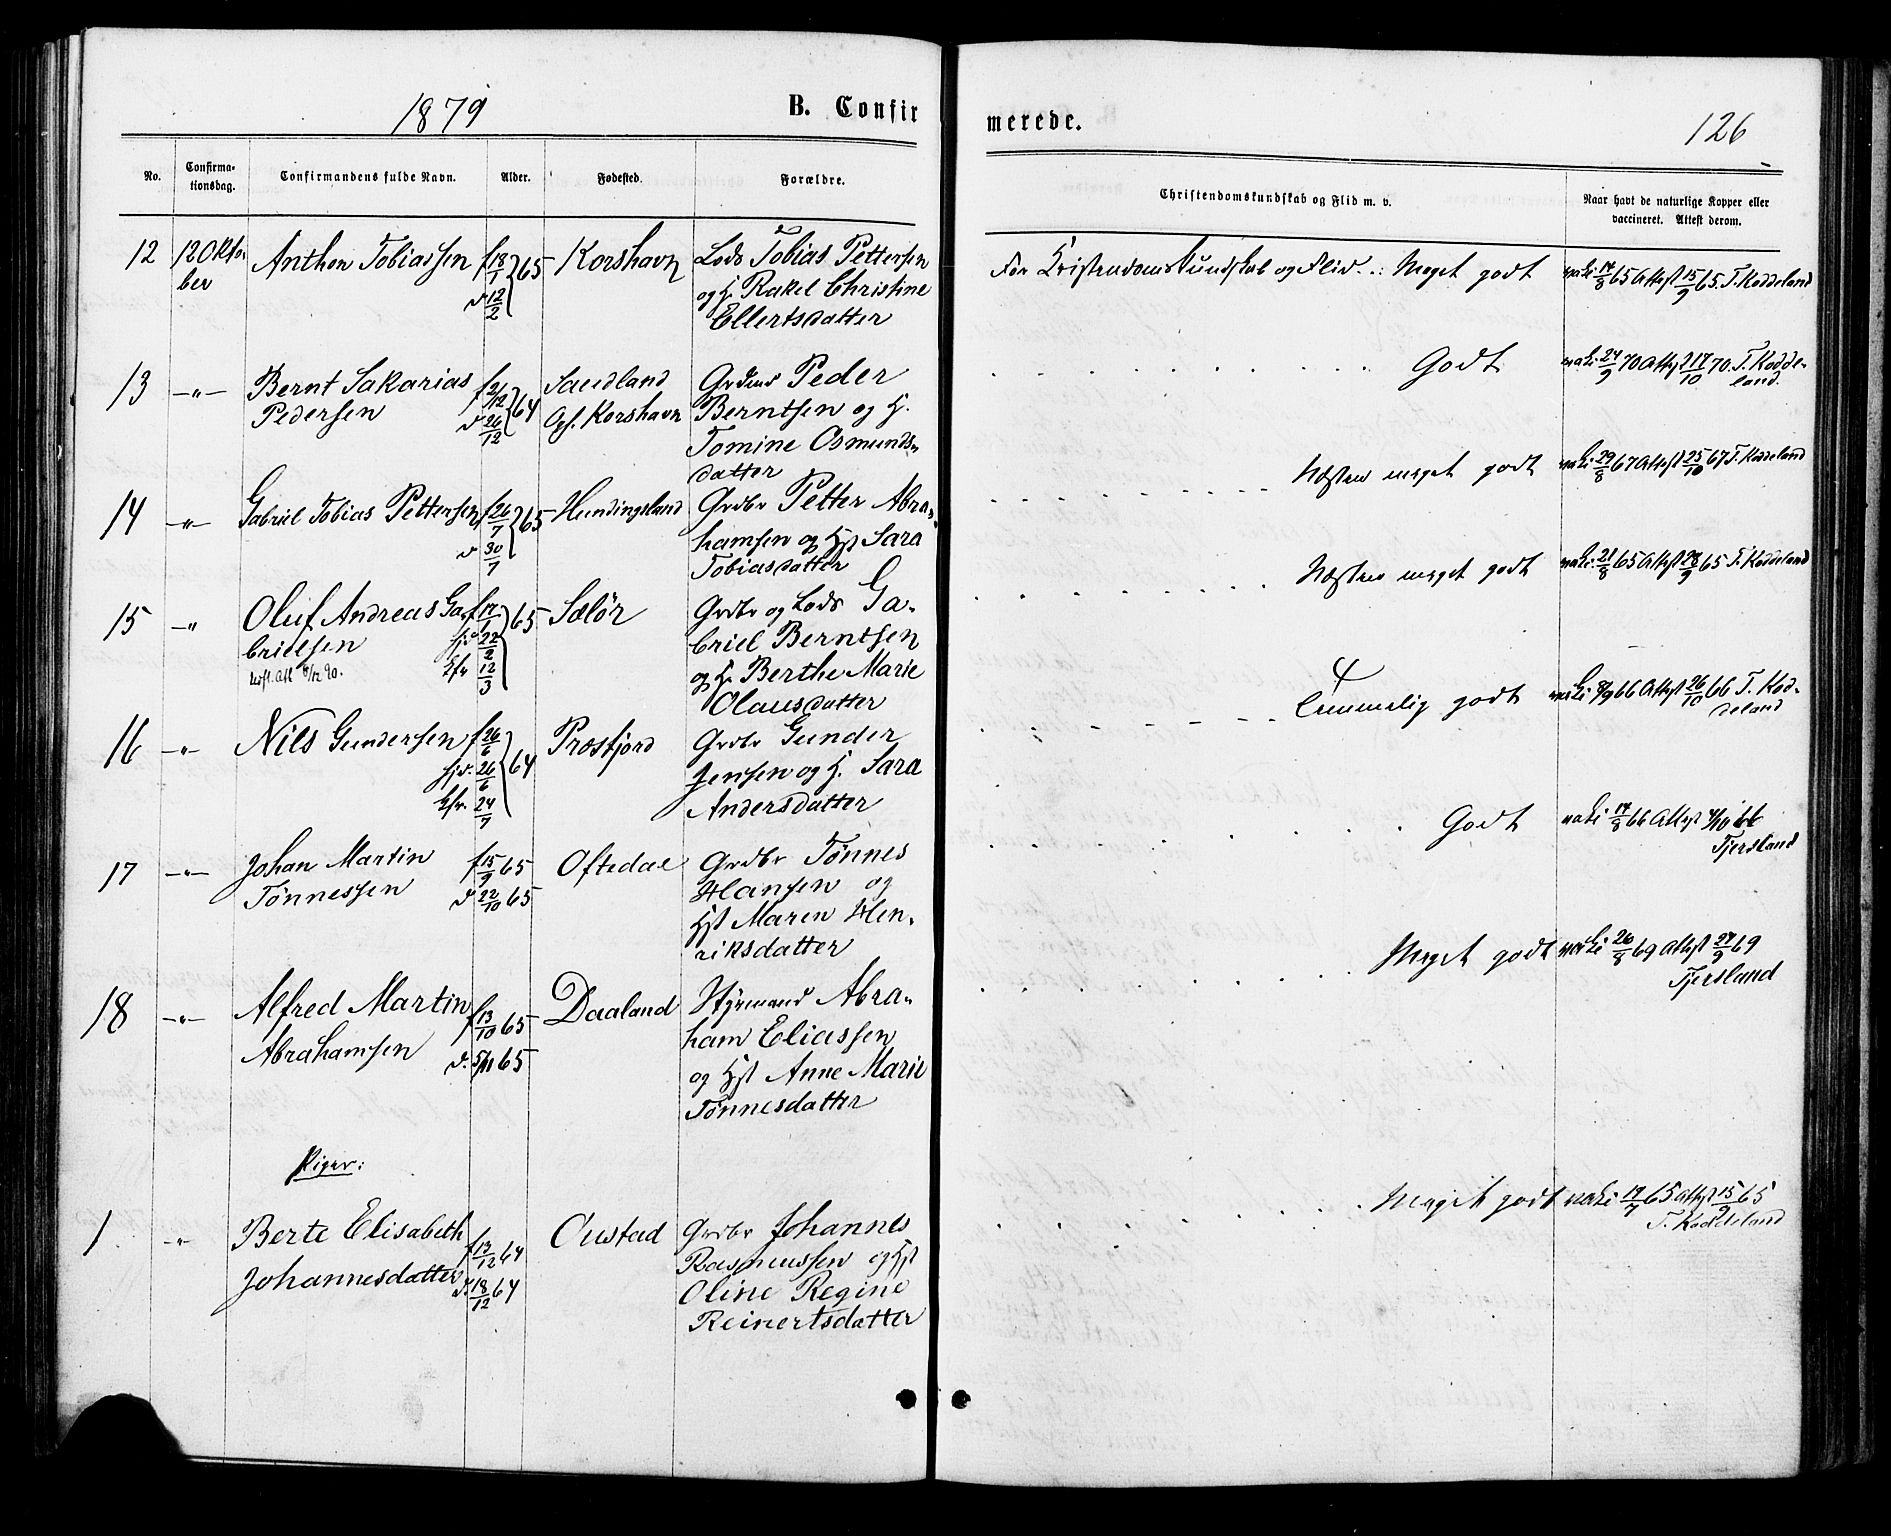 1879
B. Confir
merede.
126
No.
Confirma-
tionsdag.
Confirmandens fulde Navn.
Alder.
Fødested.
Forældre.
Christendomskundskab og Flid m. v.
Naar havt de naturlige Kopper eller
vaccineret. Attest derom.
12 12 Okto-
ber
Anthon Tobiassen f 18/1 d 12/2 65
Korshavn
Lods Tobias Pettersen
og H. Rakel Christine
Ellertsdatter
For Kristendomskundskab og Flid.: Meget godt
vaki 14/8 65 Attest 15/9 65. T. Koddeland
13 -"- Bernt Sakarias
Pedersen
f 21/12 d 26/12 64
Saudland
Korshavn
Peder
Berntsen og H.
Tomine Osmunds-
datter
Godt
vaki 24/9 70 Attest 17/10 70. T. Kodde-
land.
14 -"- Gabriel Tobias Pettersen f 26/7 d 30/7 65
Hundingsland
Grdbr Petter Abra-
hamsen og Hst Sara
Tobiasdatter
Næsten meget godt
vaki 29/8 67 Attest 25/10 67 T. Koddeland
15 -"- Oluf Andreas Ga-
brielsen
f 17/1 hjd 22/2 Kfr 12/3 65
Sælør
Grdbr og Lods Ga-
briel Berntsen
og H. Berthe Marie
Olausdatter
Næsten meget godt
vaki 21/8 65 Attest 28/9 65 T. Koddeland
16 -"- Nils Gundersen f 26/6 hjd. 26/6 Kfr. 24/7 64
Præsfjord
Grdbr Gunder
Jensen og H. Sara
Andersdatter
Temmelig godt
vaki 8/9 66 Attest 26/10 66 T. Kod-
deland
17 -"- Johan Martin
Tønnessen
f 15/9 65
d 22/10 65
Oftedal
Grdbr Tønnes
Hansen og
Hst Maren Hen-
riksdatter
Godt
vaki 14/8 66 Attest
Fjersland
18 -"- Alfred Martin
Abrahamsen
f 13/10 65
d. 5/11 65
Daaland
Styrmand Abra-
ham Eliassen
og Hst Anne Marie
Tønnesdatter
Meget godt
vaki 26/8 69 Attest 27/9 69
Fjersland
Piger:
1 -"- Berte Elisabeth
Johannesdatter
f 13/12 64
d. 18/12 64
Oustad
Grdbr Johannes
Rasmussen og Hst
Oline Regine
Reinertsdatter
Meget godt
vaki 17/7 65 Attest 15/9 65
T. Koddeland